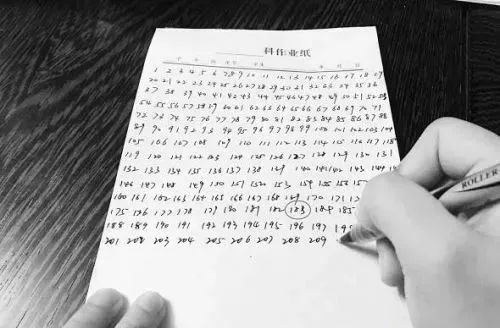 科作业纸
1 2 3 4 5 6 7 8 9 10 11 12 13 14 15 16 17 18 19
20 21 22 23 24 25 26 27 28 29 30 31 32 33 34 35 36
37 38 39 40 41 42 43 44 45 46 47 48 49 50 51 52 53
54 55 56 57 58 59 60 61 62 63 64 65 66 67 68 69 70 71
72 73 74 75 76 77 78 79 80 81 82 83 84 85 86 87 88
89 90 91 92 93 94 95 96 97 98 99 100 101 102 103 104
105 106 107 108 109 110 111 112 113 114 115 116 117 118
119 120 121 122 123 124 125 126 127 128 129 130 131
132 133 134 135 136 137 138 139 140 141 142 143 144
146 147 148 149 150 151 152 153 154 155 156
160 161 162 163 164 165 166 167 168 169 170 171
175 176 177 178 179 180 181 182 183 184 185
188 189 190 191 192 193 194 195 196 197
201 202 203 204 205 206 207 208 209
ROLLER